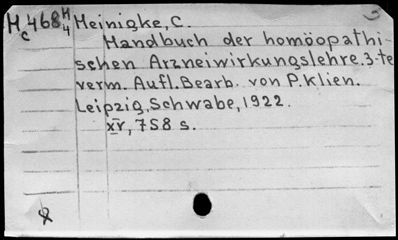 M 468 H Meinigke, C.
c 4
Handbuch der homöopathi-
schen Arzneiwirkungslehre. 3-te
verm. Aufl. Bearb. von P. Klien.
Leipzig, Schwabe, 1922.
XV, 758 s.